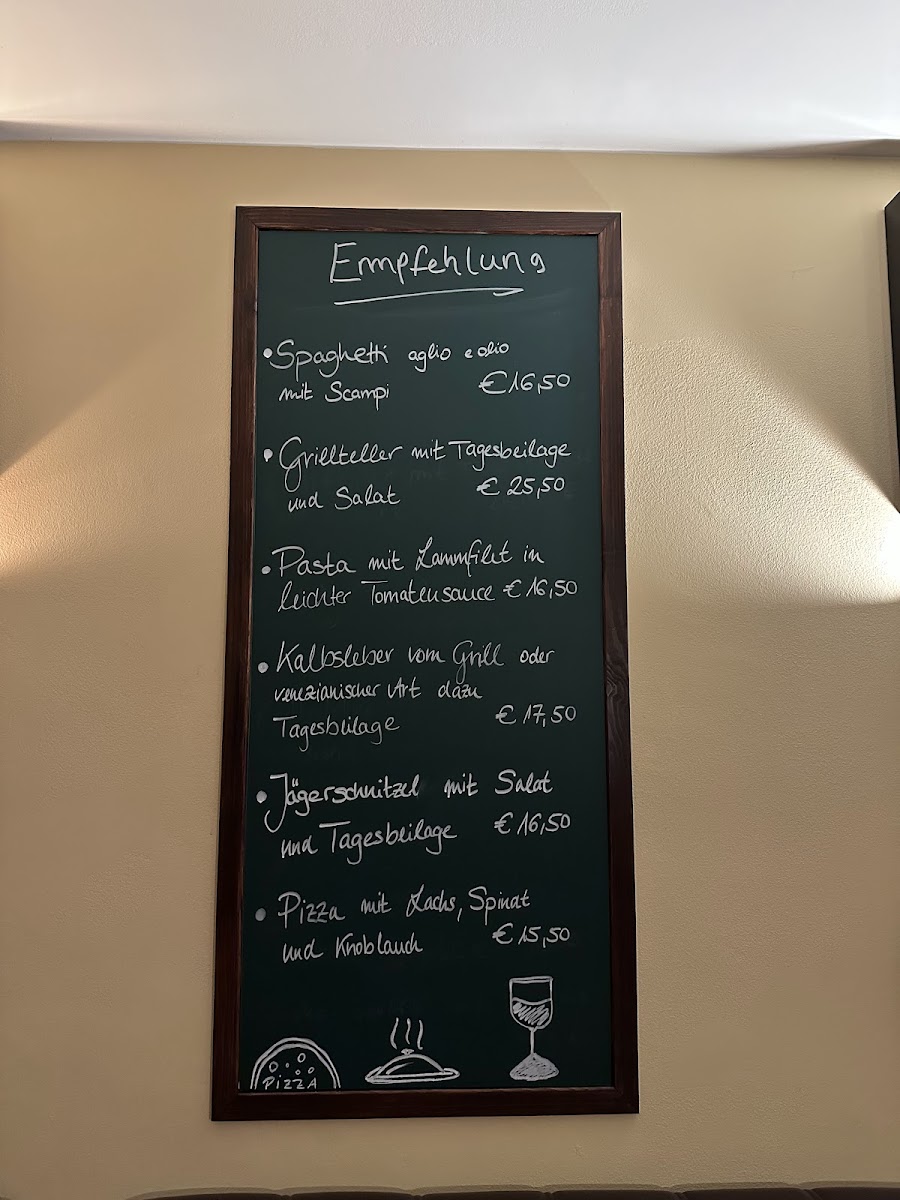 Empfehlung
• Spaghetti aglio e olio
mit Scampi €16,50
• Grillteller mit Tagesbeilage
und Salat € 25,50
• Pasta mit Lammfilet in
leichter Tomatensauce € 16,50
• Kalbsleber vom Grill oder
venezianischer Art dazu
Tagesbeilage € 17,50
• Jägerschnitzel mit Salat
und Tagesbeilage € 16,50
• Pizza mit Lachs, Spinat
und Knoblauch € 15,50
PIZZA